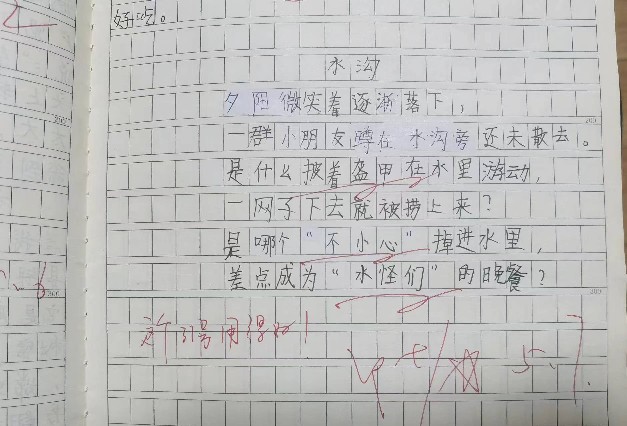 好吃。
水沟
夕阳微笑着逐渐落下，
一群小朋友蹲在水沟旁还未散去。
是什么披着盔甲在水里游动，
一网子下去就被捞上来？
是哪个“不小心”掉进水里，
差点成为“水怪们”的晚餐？
引号用得好！
5.7.